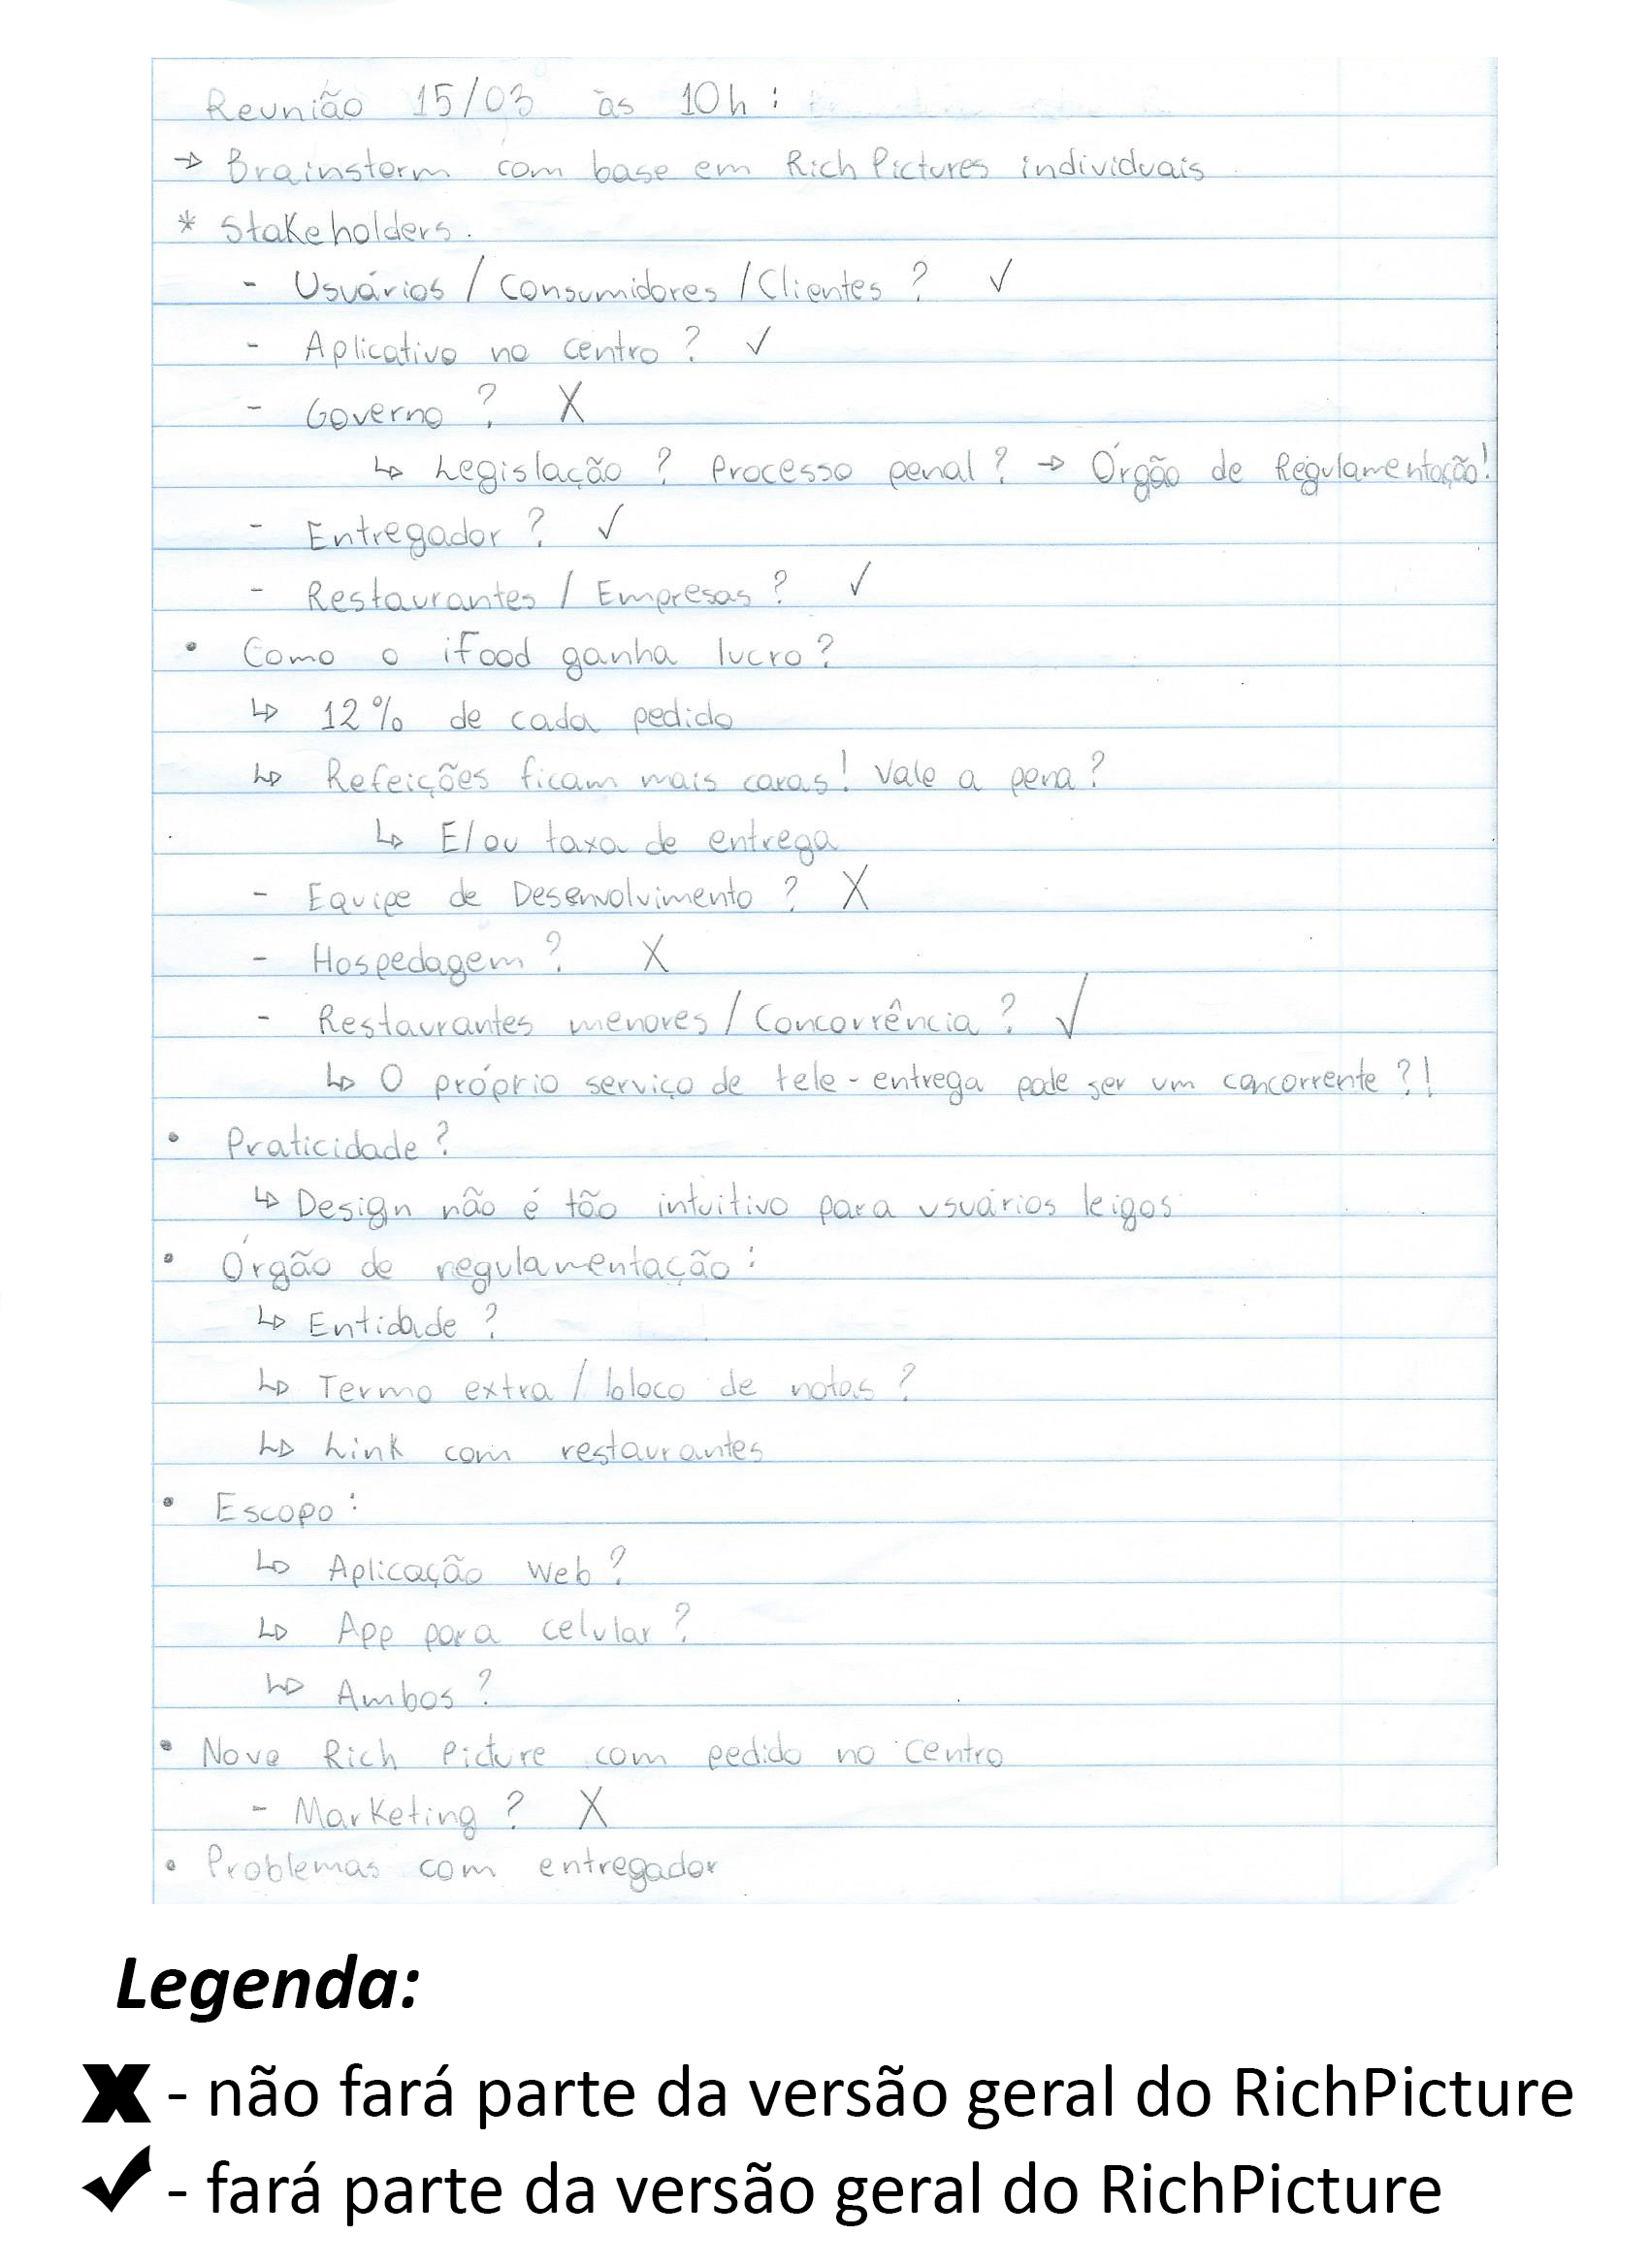 Reunião 15/03 às 10h:
→ Brainstorm com base em Rich Pictures individuais
* Stakeholders.
- Usuários / Consumidores / Clientes ? ✓
- Aplicativo no centro ? ✓
- Governo ? X
↳ Legislação ? Processo penal ? → Órgão de Regulamentação!
- Entregador ? ✓
- Restaurantes / Empresas ? ✓
• Como o iFood ganha lucro ?
↳ 12% de cada pedido
↳ Refeições ficam mais caras! Vale a pena ?
↳ E/ou taxa de entrega
- Equipe de Desenvolvimento ? X
- Hospedagem ? X
- Restaurantes menores / Concorrência ? ✓
↳ O próprio serviço de tele-entrega pode ser um concorrente ?!
• Praticidade ?
↳ Design não é tão intuitivo para usuários leigos
• Órgão de regulamentação :
↳ Entidade ?
↳ Termo extra / bloco de notas ?
↳ Link com restaurantes
• Escopo :
↳ Aplicação Web ?
↳ App para celular ?
↳ Ambos ?
• Novo Rich Picture com pedido no centro
- Marketing ? X
• Problemas com entregador
Legenda:
X - não fará parte da versão geral do RichPicture
✓ - fará parte da versão geral do RichPicture